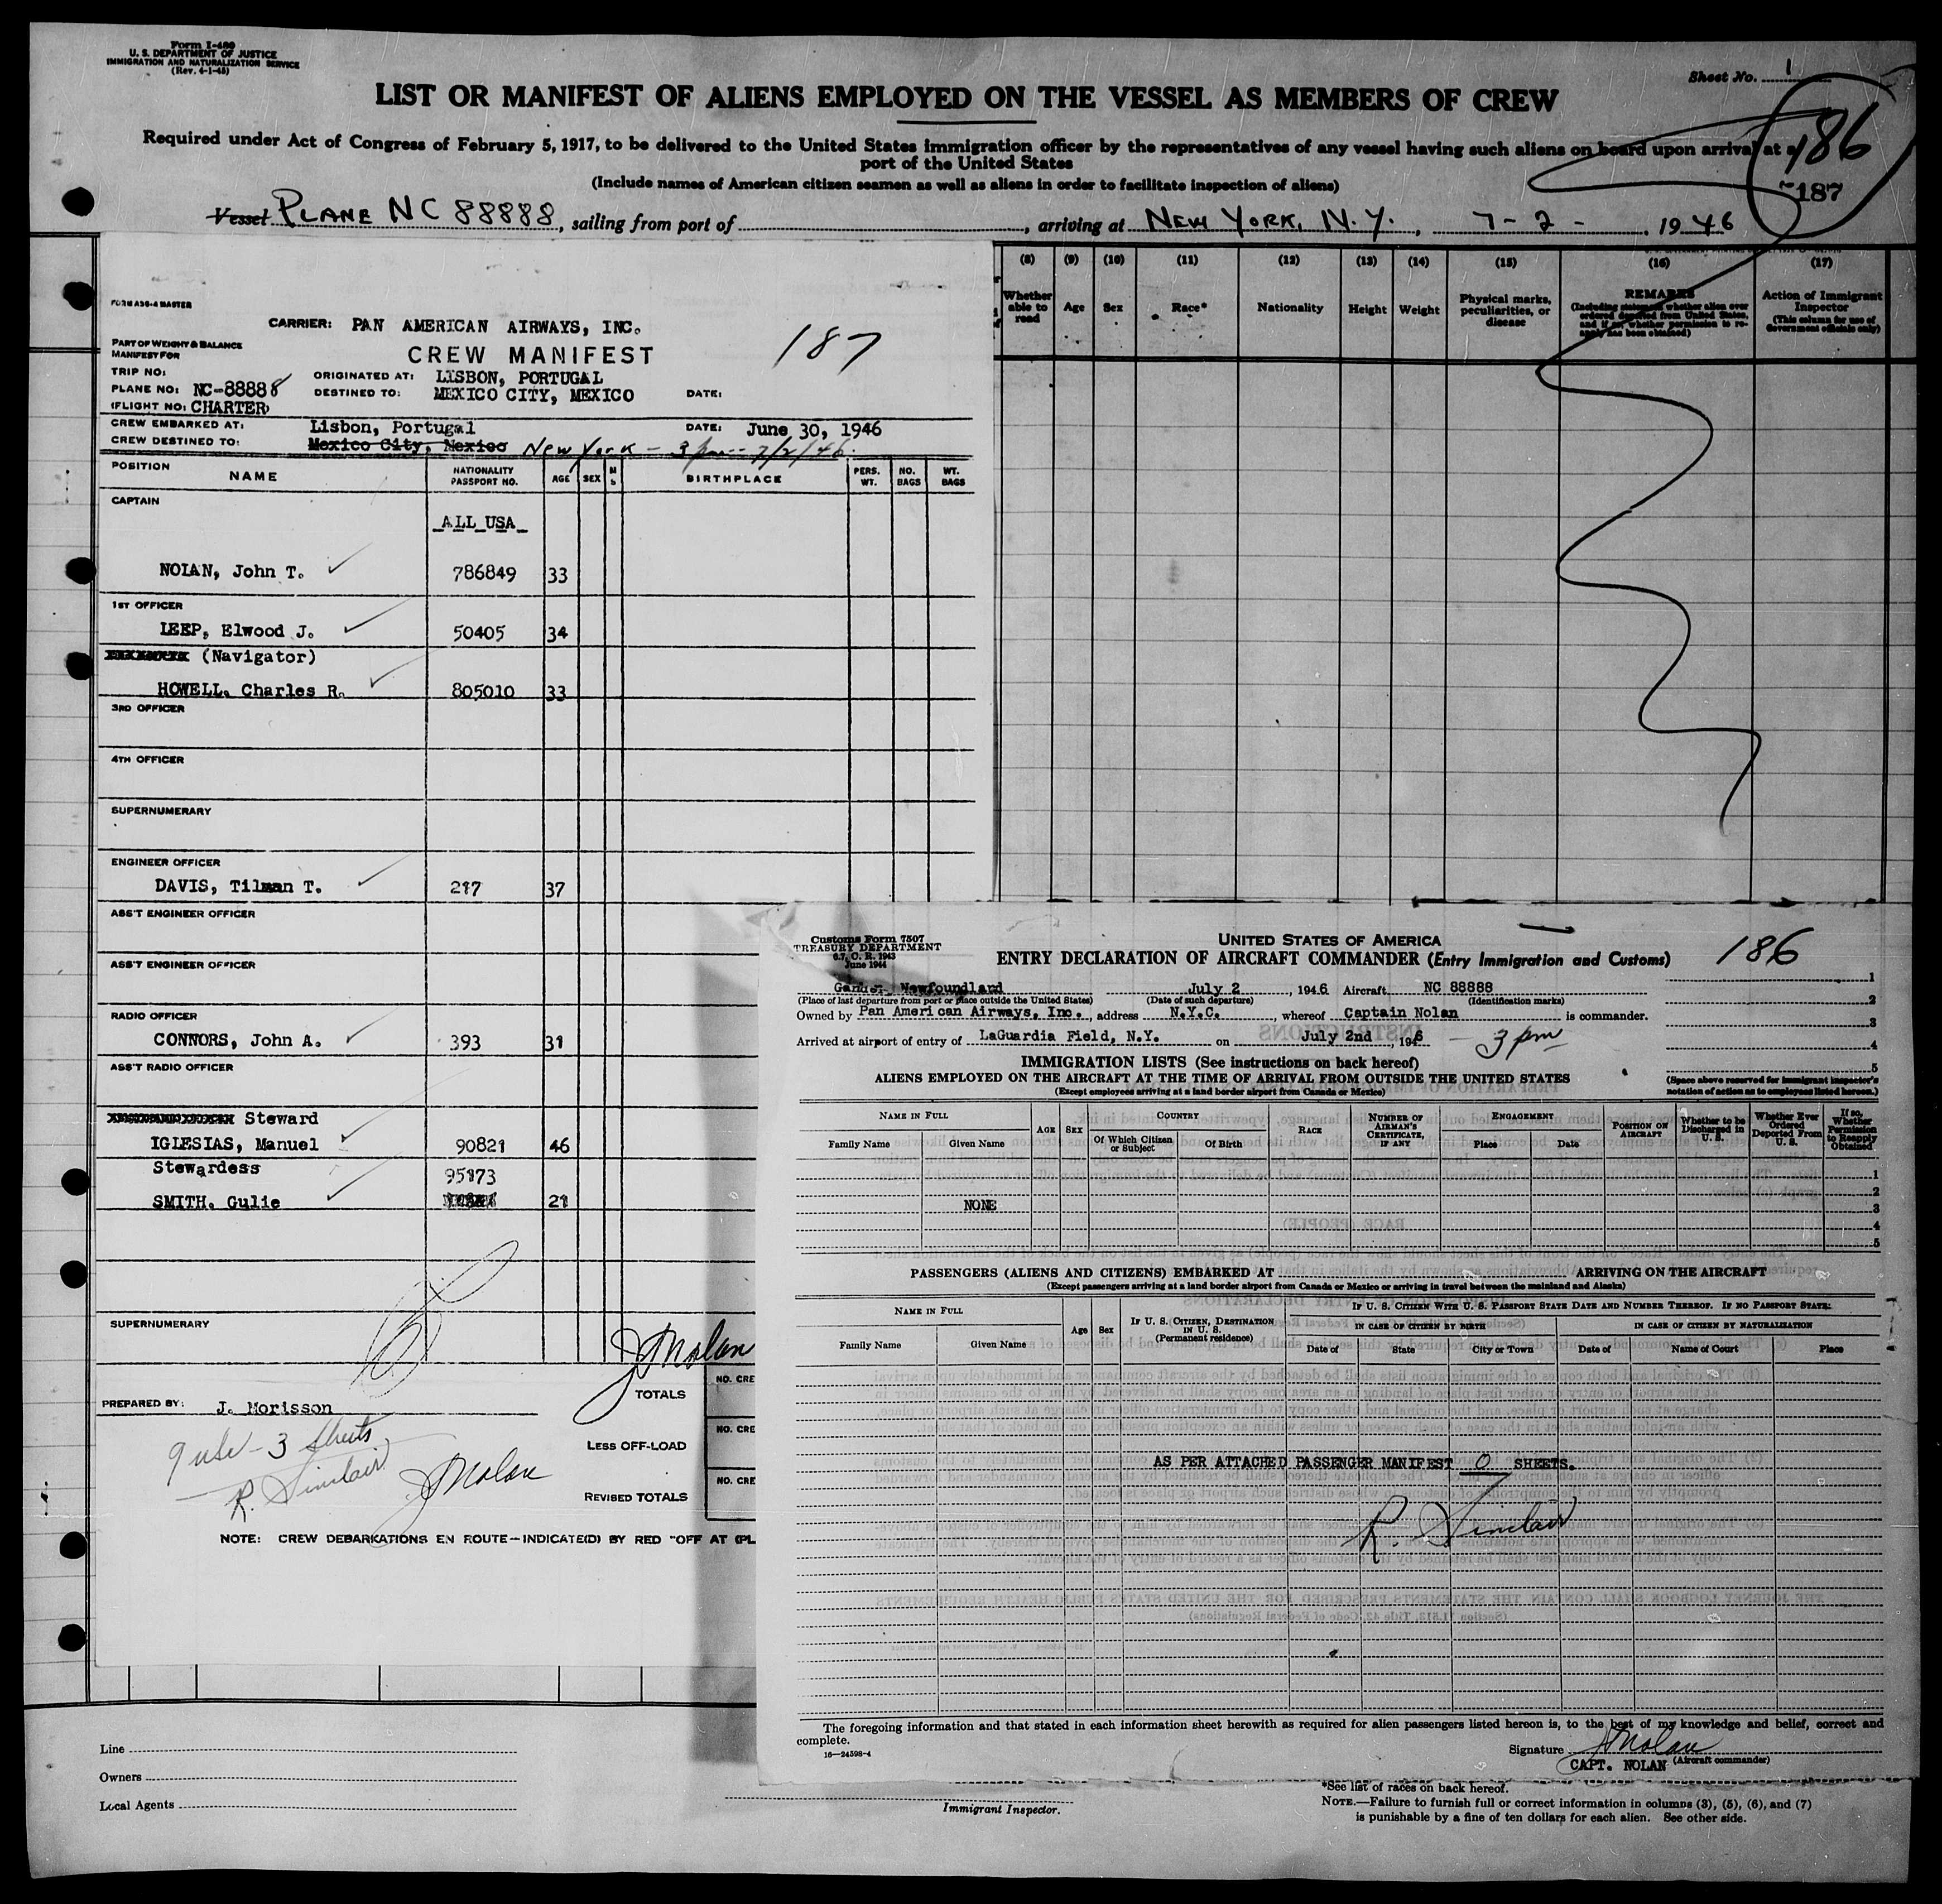 Form I-480
U. S. DEPARTMENT OF JUSTICE
IMMIGRATION AND NATURALIZATION SERVICE
(Rev. 4-1-45)
Sheet No. 1
LIST OR MANIFEST OF ALIENS EMPLOYED ON THE VESSEL AS MEMBERS OF CREW
186
~187
Required under Act of Congress of February 5, 1917, to be delivered to the United States immigration officer by the representatives of any vessel having such aliens on board upon arrival at a
port of the United States
(Include names of American citizen seamen as well as aliens in order to facilitate inspection of aliens)
Vessel PLANE NC 88888, sailing from port of , arriving at NEW YORK, N.Y., 7-2- 1946
(8) (9) (10) (11) (12) (13) (14) (15) (16) (17)
Whether able to read Age Sex Race* Nationality Height Weight Physical marks, peculiarities, or disease REMARKS Action of Immigrant Inspector
(This column for use of Government officials only)
FORM A36-4 MASTER
CARRIER: PAN AMERICAN AIRWAYS, INC.
187
PART OF WEIGHT & BALANCE
MANIFEST FOR
CREW MANIFEST
TRIP NO:
ORIGINATED AT: LISBON, PORTUGAL
PLANE NO: NC-88888
DESTINED TO: MEXICO CITY, MEXICO DATE:
FLIGHT NO: CHARTER
CREW EMBARKED AT: Lisbon, Portugal DATE: June 30, 1946
CREW DESTINED TO: Mexico City, Mexico New York - 3 pm - 7/2/46.
POSITION NAME NATIONALITY PASSPORT NO. AGE SEX BIRTHPLACE PERS. WT. NO. BAGS WT. BAGS
CAPTAIN
ALL USA
NOLAN, John T. 786849 33
1ST OFFICER
LEEP, Elwood J. 50405 34
(Navigator)
HOWELL, Charles R. 805010 33
3RD OFFICER
4TH OFFICER
SUPERNUMERARY
ENGINEER OFFICER
DAVIS, Tilman T. 217 37
ASS'T ENGINEER OFFICER
ASS'T ENGINEER OFFICER
RADIO OFFICER
CONNORS, John A. 393 31
ASS'T RADIO OFFICER
Steward
IGLESIAS, Manuel 90821 46
Stewardess 95173
SMITH, Gulie 21
SUPERNUMERARY
JNolan
TOTALS NO. CRE
PREPARED BY: J. Morisson
9 USC - 3 sheets
R. Sinclair
JNolan
LESS OFF-LOAD NO. CRE
REVISED TOTALS NO. CRE
NOTE: CREW DEBARKATIONS EN ROUTE—INDICATE(D) BY RED "OFF AT (PL
Customs Form 7507
TREASURY DEPARTMENT
6.7, C. R. 1943
June 1944
UNITED STATES OF AMERICA
ENTRY DECLARATION OF AIRCRAFT COMMANDER (Entry Immigration and Customs)
186
Gander, Newfoundland July 2, 1946 Aircraft NC 88888
(Place of last departure from port or place outside the United States) (Date of such departure) (Identification marks)
Owned by Pan American Airways, Inc., address N.Y.C., whereof Captain Nolan is commander.
Arrived at airport of entry of LaGuardia Field, N.Y. on July 2nd, 1946 - 3 pm
1
2
3
4
5
(Space above reserved for immigrant inspector's notation of action as to employees listed hereon.)
IMMIGRATION LISTS (See instructions on back hereof)
ALIENS EMPLOYED ON THE AIRCRAFT AT THE TIME OF ARRIVAL FROM OUTSIDE THE UNITED STATES
(Except employees arriving at a land border airport from Canada or Mexico)
NAME IN FULL AGE SEX COUNTRY RACE NUMBER OF AIRMAN'S CERTIFICATE, IF ANY ENGAGEMENT POSITION ON AIRCRAFT Whether to be Discharged in U. S. Whether Ever Ordered Deported From U. S. If so, Whether Permission to Reapply Obtained
Family Name Given Name Of Which Citizen or Subject Of Birth Place Date
1
2
NONE 3
4
5
PASSENGERS (ALIENS AND CITIZENS) EMBARKED AT ARRIVING ON THE AIRCRAFT
(Except passengers arriving at a land border airport from Canada or Mexico or arriving in travel between the mainland and Alaska)
NAME IN FULL Age Sex IF U. S. CITIZEN, DESTINATION IN U. S. (Permanent residence) IF U. S. CITIZEN WITH U. S. PASSPORT STATE DATE AND NUMBER THEREOF. IF NO PASSPORT STATE:
IN CASE OF CITIZEN BY BIRTH IN CASE OF CITIZEN BY NATURALIZATION
Family Name Given Name Date of State City or Town Date of Name of Court Place
AS PER ATTACHED PASSENGER MANIFEST 0 SHEETS.
R. Sinclair
The foregoing information and that stated in each information sheet herewith as required for alien passengers listed hereon is, to the best of my knowledge and belief, correct and
complete.
16—24598-4
Signature JNolan
CAPT. NOLAN (Aircraft commander)
Line
Owners
Local Agents
Immigrant Inspector.
*See list of races on back hereof.
NOTE.—Failure to furnish full or correct information in columns (3), (5), (6), and (7)
is punishable by a fine of ten dollars for each alien. See other side.